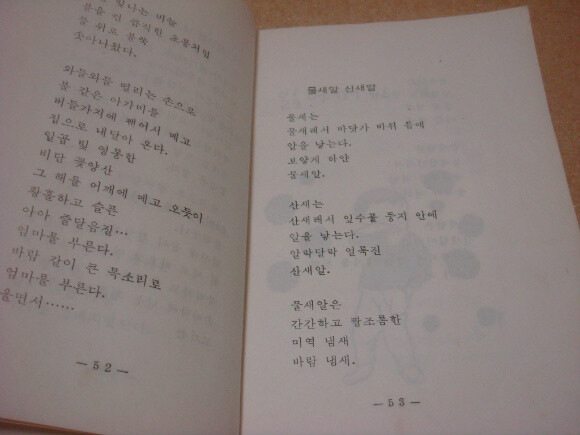 빛나는 비늘
물을 먼 참지한 초롱처럼
물 위로 불쑥
솟아나왔다.
와들와들 떨리는 손으로
불 같은 아가미를
버들가지에 뀌어서 메고
집으로 내달아 온다.
일곱 빛 영롱한
비단 꽃양산
그 해를 어깨에 메고 오듯이
황홀하고 슬픈
아아 줄달음질…
엄마를 부른다.
바람 같이 큰 목소리로
엄마를 부른다.
울면서……
— 52 —
물새알 산새알
물새는
물새래서 바닷가 바위 틈에
알을 낳는다.
보얗게 하얀
물새알.
산새는
산새래서 잎수풀 둥지 안에
알을 낳는다.
알락달락 얼룩진
산새알.
물새알은
간간하고 짭조름한
미역 냄새
바람 냄새.
— 53 —